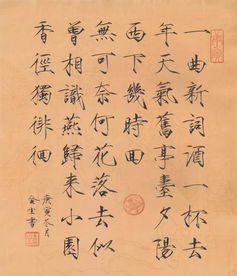 一曲新詞酒一杯去
年天氣舊亭臺夕陽
西下幾時回
無可奈何花落去似
曾相識燕歸来小園
香徑獨徘徊
庚寅冬月
書